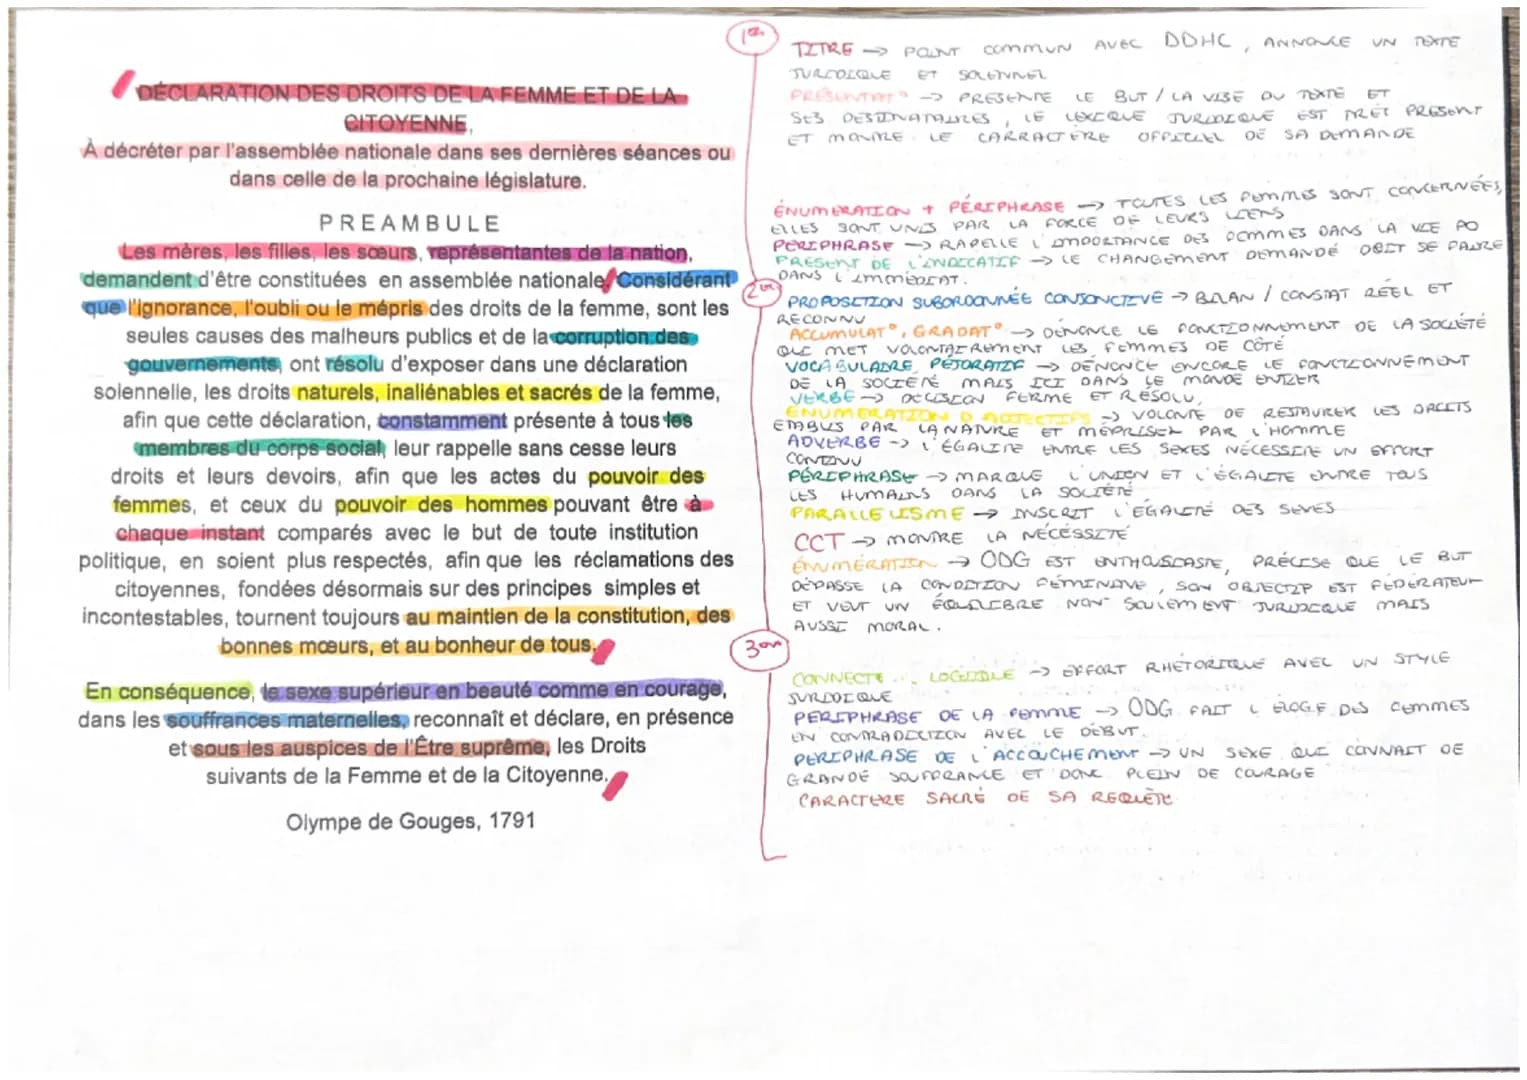 DÉCLARATION DES DROITS DE LA FEMME ET DE LA
CITOYENNE,
À décréter par l'assemblée nationale dans ses dernières séances ou
dans celle de la prochaine législature.
PREAMBULE
Les mères, les filles, les sœurs, représentantes de la nation,
demandent d'être constituées en assemblée nationale. Considérant
que l'ignorance, l'oubli ou le mépris des droits de la femme, sont les
seules causes des malheurs publics et de la corruption des
gouvernements, ont résolu d'exposer dans une déclaration
solennelle, les droits naturels, inaliénables et sacrés de la femme,
afin que cette déclaration, constamment présente à tous les
membres du corps social, leur rappelle sans cesse leurs
droits et leurs devoirs, afin que les actes du pouvoir des
femmes, et ceux du pouvoir des hommes pouvant être à
chaque instant comparés avec le but de toute institution
politique, en soient plus respectés, afin que les réclamations des
citoyennes, fondées désormais sur des principes simples et
incontestables, tournent toujours au maintien de la constitution, des
bonnes mœurs, et au bonheur de tous.
En conséquence, le sexe supérieur en beauté comme en courage,
dans les souffrances maternelles, reconnaît et déclare, en présence
et sous les auspices de l'Être suprême, les Droits
suivants de la Femme et de la Citoyenne.
Olympe de Gouges, 1791
1er
TITRE → POINT COMMUN AVEC DDHC, ANNONCE UN TEXTE
JURIDIQUE ET SOLENNEL
PRÉSENTAT° → PRESENTE LE BUT / LA VISE DU TEXTE ET
SES DESTINATAIRES, LE LEXIQUE JURIDIQUE EST PRESENT
ET MONTRE LE CARRACTÈRE OFFICIEL DE SA DEMANDE
ÉNUMERATION + PÉRIPHRASE → TOUTES LES FEMMES SONT CONCERNÉES,
ELLES SONT UNIS PAR LA FORCE DE LEURS LIENS
PERIPHRASE → RAPELLE L'IMPORTANCE DES FEMMES DANS LA VIE PO
PRÉSENT DE L'INDICATIF → LE CHANGEMENT DEMANDÉ DOIT SE FAIRE
DANS L'IMMÉDIAT.
2em
PROPOSITION SUBORDONNÉE CONJONCTIVE → BILAN / CONSTAT RÉEL ET
RECONNU
ACCUMULAT°, GRADAT° → DÉNONCE LE FONCTIONNEMENT DE LA SOCIÉTÉ
QUI MET VOLONTAIREMENT LES FEMMES DE CÔTÉ
VOCABULAIRE PEJORATIF → DÉNONCE ENCORE LE FONCTIONNEMENT
DE LA SOCIÉTÉ MAIS ICI DANS LE MONDE ENTIER
VERBE → DECISION FERME ET RÉSOLU,
ÉNUMERATION D'ADJECTIFS → VOLONTÉ DE RESTAURER LES DROITS
ETABLIS PAR LA NATURE ET MÉPRISER PAR L'HOMME
ADVERBE → L'ÉGALITÉ ENTRE LES SEXES NÉCESSITE UN EFFORT
CONTINU
PÉRIPHRASE → MARQUE L'UNION ET L'ÉGALITE ENTRE TOUS
LES HUMAINS DANS LA SOCIÉTÉ
PARALLELISME → INSCRIT L'EGALITÉ DES SEXES
CCT → MONTRE LA NÉCESSITÉ
ÉNUMÉRATION → ODG EST ENTHOUSIASTE, PRÉCISE QUE LE BUT
DÉPASSE LA CONDITION FÉMININE, SON OBJECTIF EST FÉDÉRATEUR
ET VEUT UN ÉQUILIBRE NON SEULEMENT JURIDIQUE MAIS
AUSSI MORAL.
3em
CONNECTE LOGIQUE → EFFORT RHÉTORIQUE AVEC UN STYLE
JURIDIQUE
PERIPHRASE DE LA FEMME → ODG FAIT L'ÉLOGE DES FEMMES
EN CONTRADICTION AVEC LE DÉBUT.
PERIPHRASE DE L'ACCOUCHEMENT → UN SEXE QUI CONNAIT DE
GRANDE SOUFFRANCE ET DONC PLEIN DE COURAGE
CARACTERE SACRÉ DE SA REQUÊTE